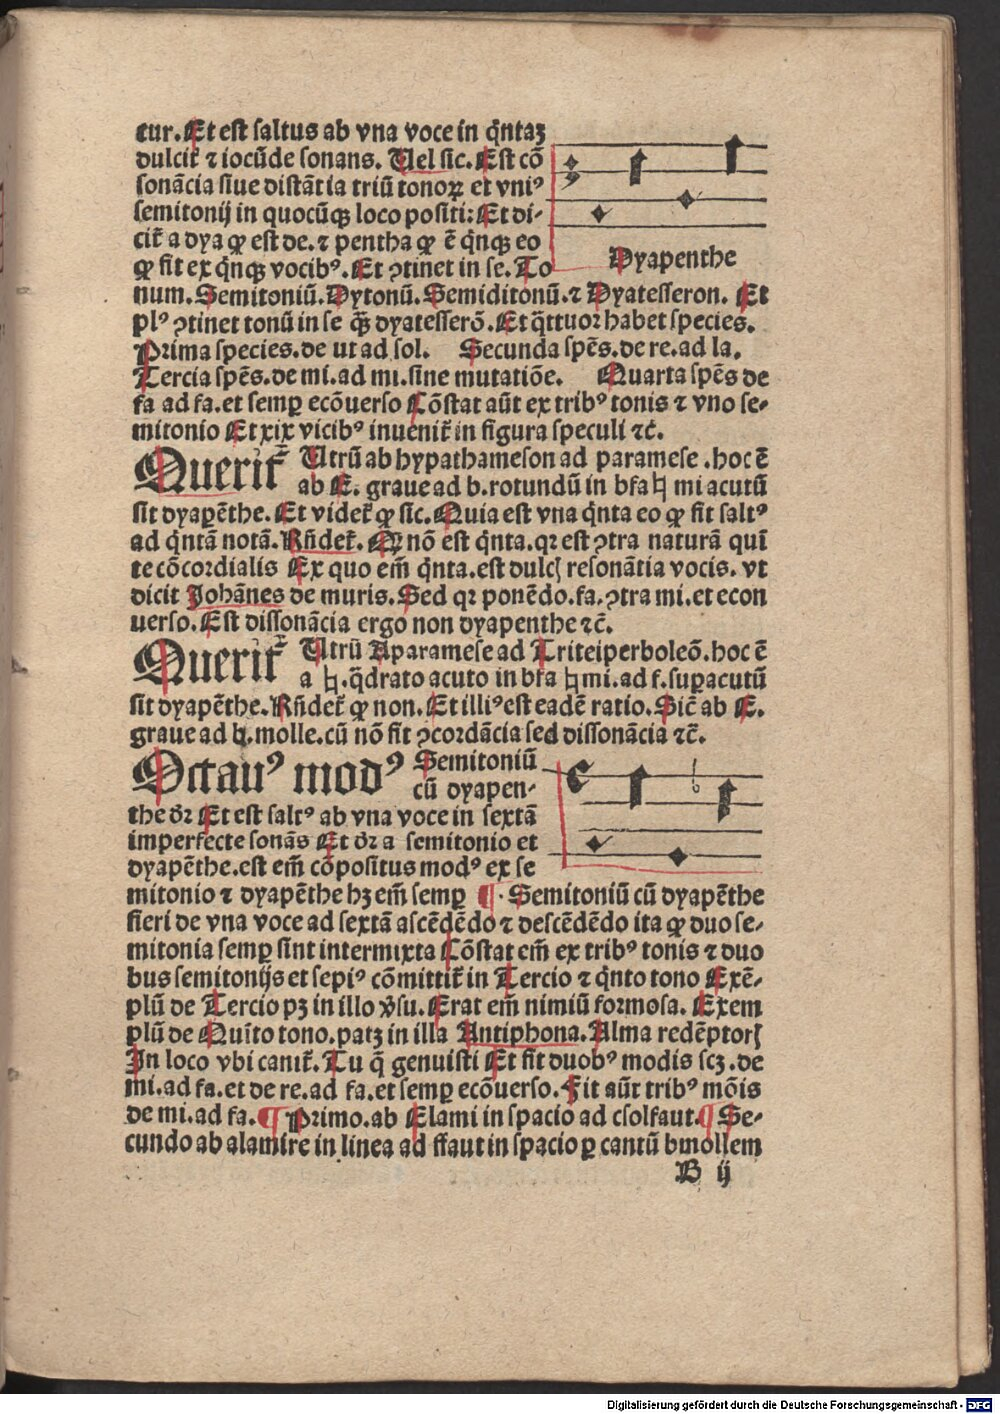 tur. Et est saltus ab vna voce in q̃ntaȝ
dulcit̃ ⁊ iocũde sonans. Uel sic. Est cõ
sonãcia siue distãtia triũ tonoꝝ et vniꝰ
semitonij in quocũqꝫ loco positi: Et di-
cit̃ a dya qꝛ est de. ⁊ pentha qꝛ ẽ q̃nqꝫ eo
qꝛ fit ex q̃nqꝫ vocibꝰ. Et ꝯtinet in se. To
Dyapenthe
num. Semitoniũ. Dytonũ. Semiditonũ. ⁊ Dyatesseron. Et
plꝰ ꝯtinet tonũ in se q̃ꝫ dyatesserõ. Et q̃ttuor habet species.
Prima species. de ut ad sol. Secunda spẽs. de re. ad la.
Tercia spẽs. de mi. ad mi. sine mutatiõe. Quarta spẽs de
fa ad fa. et semꝑ ecõuerso Cõstat aũt ex tribꝰ tonis ⁊ vno se-
mitonio Et xix vicibꝰ inuenit̃ in figura speculi ⁊c̃.
Querit̃ Utrũ ab hypathameson ad paramese . hoc ẽ
ab E. graue ad b. rotundũ in bfa ♮ mi acutũ
sit dyapẽthe. Et videt̃ qꝛ sic. Quia est vna q̃nta eo qꝛ fit saltꝰ
ad q̃ntã notã. Rñdet̃. Qꝛ nõ est q̃nta. qꝛ est ꝯtra naturã quĩ
te cõcordialis Ex quo em̃ q̃nta. est dulcꝭ resonãtia vocis. vt
dicit Johãnes de muris. Sed qꝛ ponẽdo. fa. ꝯtra mi. et econ
uerso. Est dissonãcia ergo non dyapenthe ⁊c̃.
Querit̃ Utrũ Aparamese ad Triteiperboleõ. hoc ẽ
a ♮. q̃drato acuto in bfa ♮ mi. ad f. suꝑacutũ
sit dyapẽthe. Rñdet̃ qꝛ non. Et illiꝰ est eadẽ ratio. Sic̃ ab E.
graue ad b. molle. cũ nõ fit ꝯcordãcia sed dissonãcia ⁊c̃.
Octauꝰ modꝰ Semitoniũ
cũ dyapen-
the dr̃ Et est saltꝰ ab vna voce in sextã
imperfecte sonãs Et dr̃ a semitonio et
dyapẽthe. est em̃ cõpositus modꝰ ex se
mitonio ⁊ dyapẽthe hȝ em̃ semꝑ ¶ · Semitoniũ cũ dyapẽthe
fieri de vna voce ad sextã ascẽdẽdo ⁊ descẽdẽdo ita qꝛ duo se-
mitonia semꝑ sint intermixta Cõstat em̃ ex tribꝰ tonis ⁊ duo
bus semitonijs et sepiꝰ cõmittit̃ in Tercio ⁊ q̃nto tono Exẽ-
plũ de Tercio pȝ in illo v̾su. Erat em̃ nimiũ formosa. Exem
plũ de Quĩto tono. patȝ in illa Antiphona. Alma redẽptorꝭ
In loco vbi canit̃. Tu q̃ genuisti Et fit duobꝰ modis scȝ. de
mi. ad fa. et de re. ad fa. et semꝑ ecõuerso. Fit aũt tribꝰ mõis
de mi. ad fa. ¶ Primo. ab Elami in spacio ad csolfaut. ¶ Se-
cundo ab alamire in linea ad ffaut in spacio ꝑ cantũ bmollem
B ij
Digitalisierung gefördert durch die Deutsche Forschungsgemeinschaft - DFG